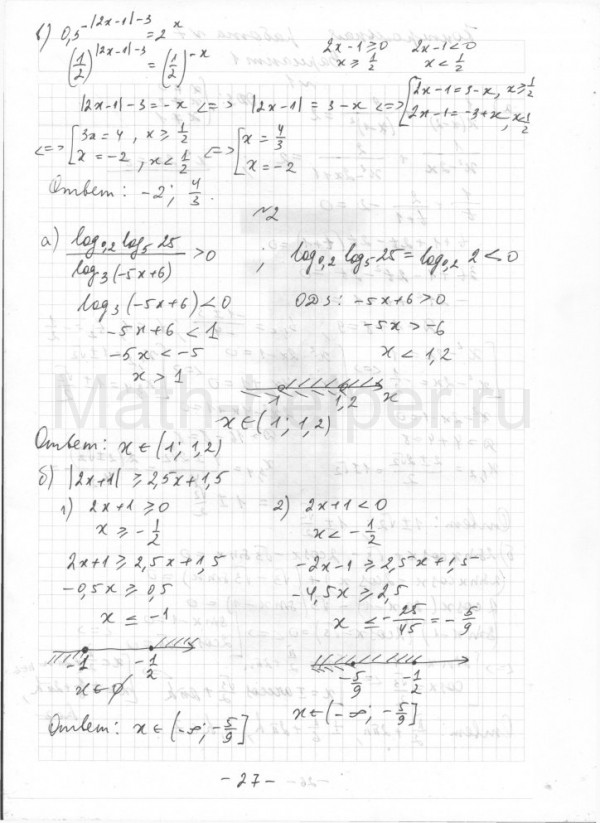 в) 0,5^{-|2x-1|-3} = 2^x
(1/2)^{|2x-1|-3} = (1/2)^{-x}
2x-1≥0   2x-1<0
x≥1/2   x<1/2
|2x-1|-3=-x <=> |2x-1|=3-x <=> [2x-1=3-x, x≥1/2
2x-1=-3+x, x<1/2
<=> [3x=4, x≥1/2   <=> [x=4/3
x=-2, x<1/2   x=-2
Ответ: -2; 4/3.
№2
а) log_{0,2} log_5 25 / log_3(-5x+6) >0 ; log_{0,2} log_5 25 = log_{0,2} 2<0
log_3(-5x+6)<0   ОДЗ: -5x+6>0
-5x+6<1   -5x>-6
-5x<-5   x<1,2
x>1
1   1,2   x
x∈(1; 1,2)
Ответ: x∈(1; 1,2)
б) |2x+1|≥2,5x+1,5
1) 2x+1≥0   2) 2x+1<0
x≥-1/2   x<-1/2
2x+1≥2,5x+1,5   -2x-1≥2,5x+1,5
-0,5x≥0,5   -4,5x≥2,5
x≤-1   x≤-25/45=-5/9
-1   -1/2   -5/9   -1/2
x∈∅   x∈(-∞; -5/9]
Ответ: x∈(-∞; -5/9]
-27-
Math-helper.ru